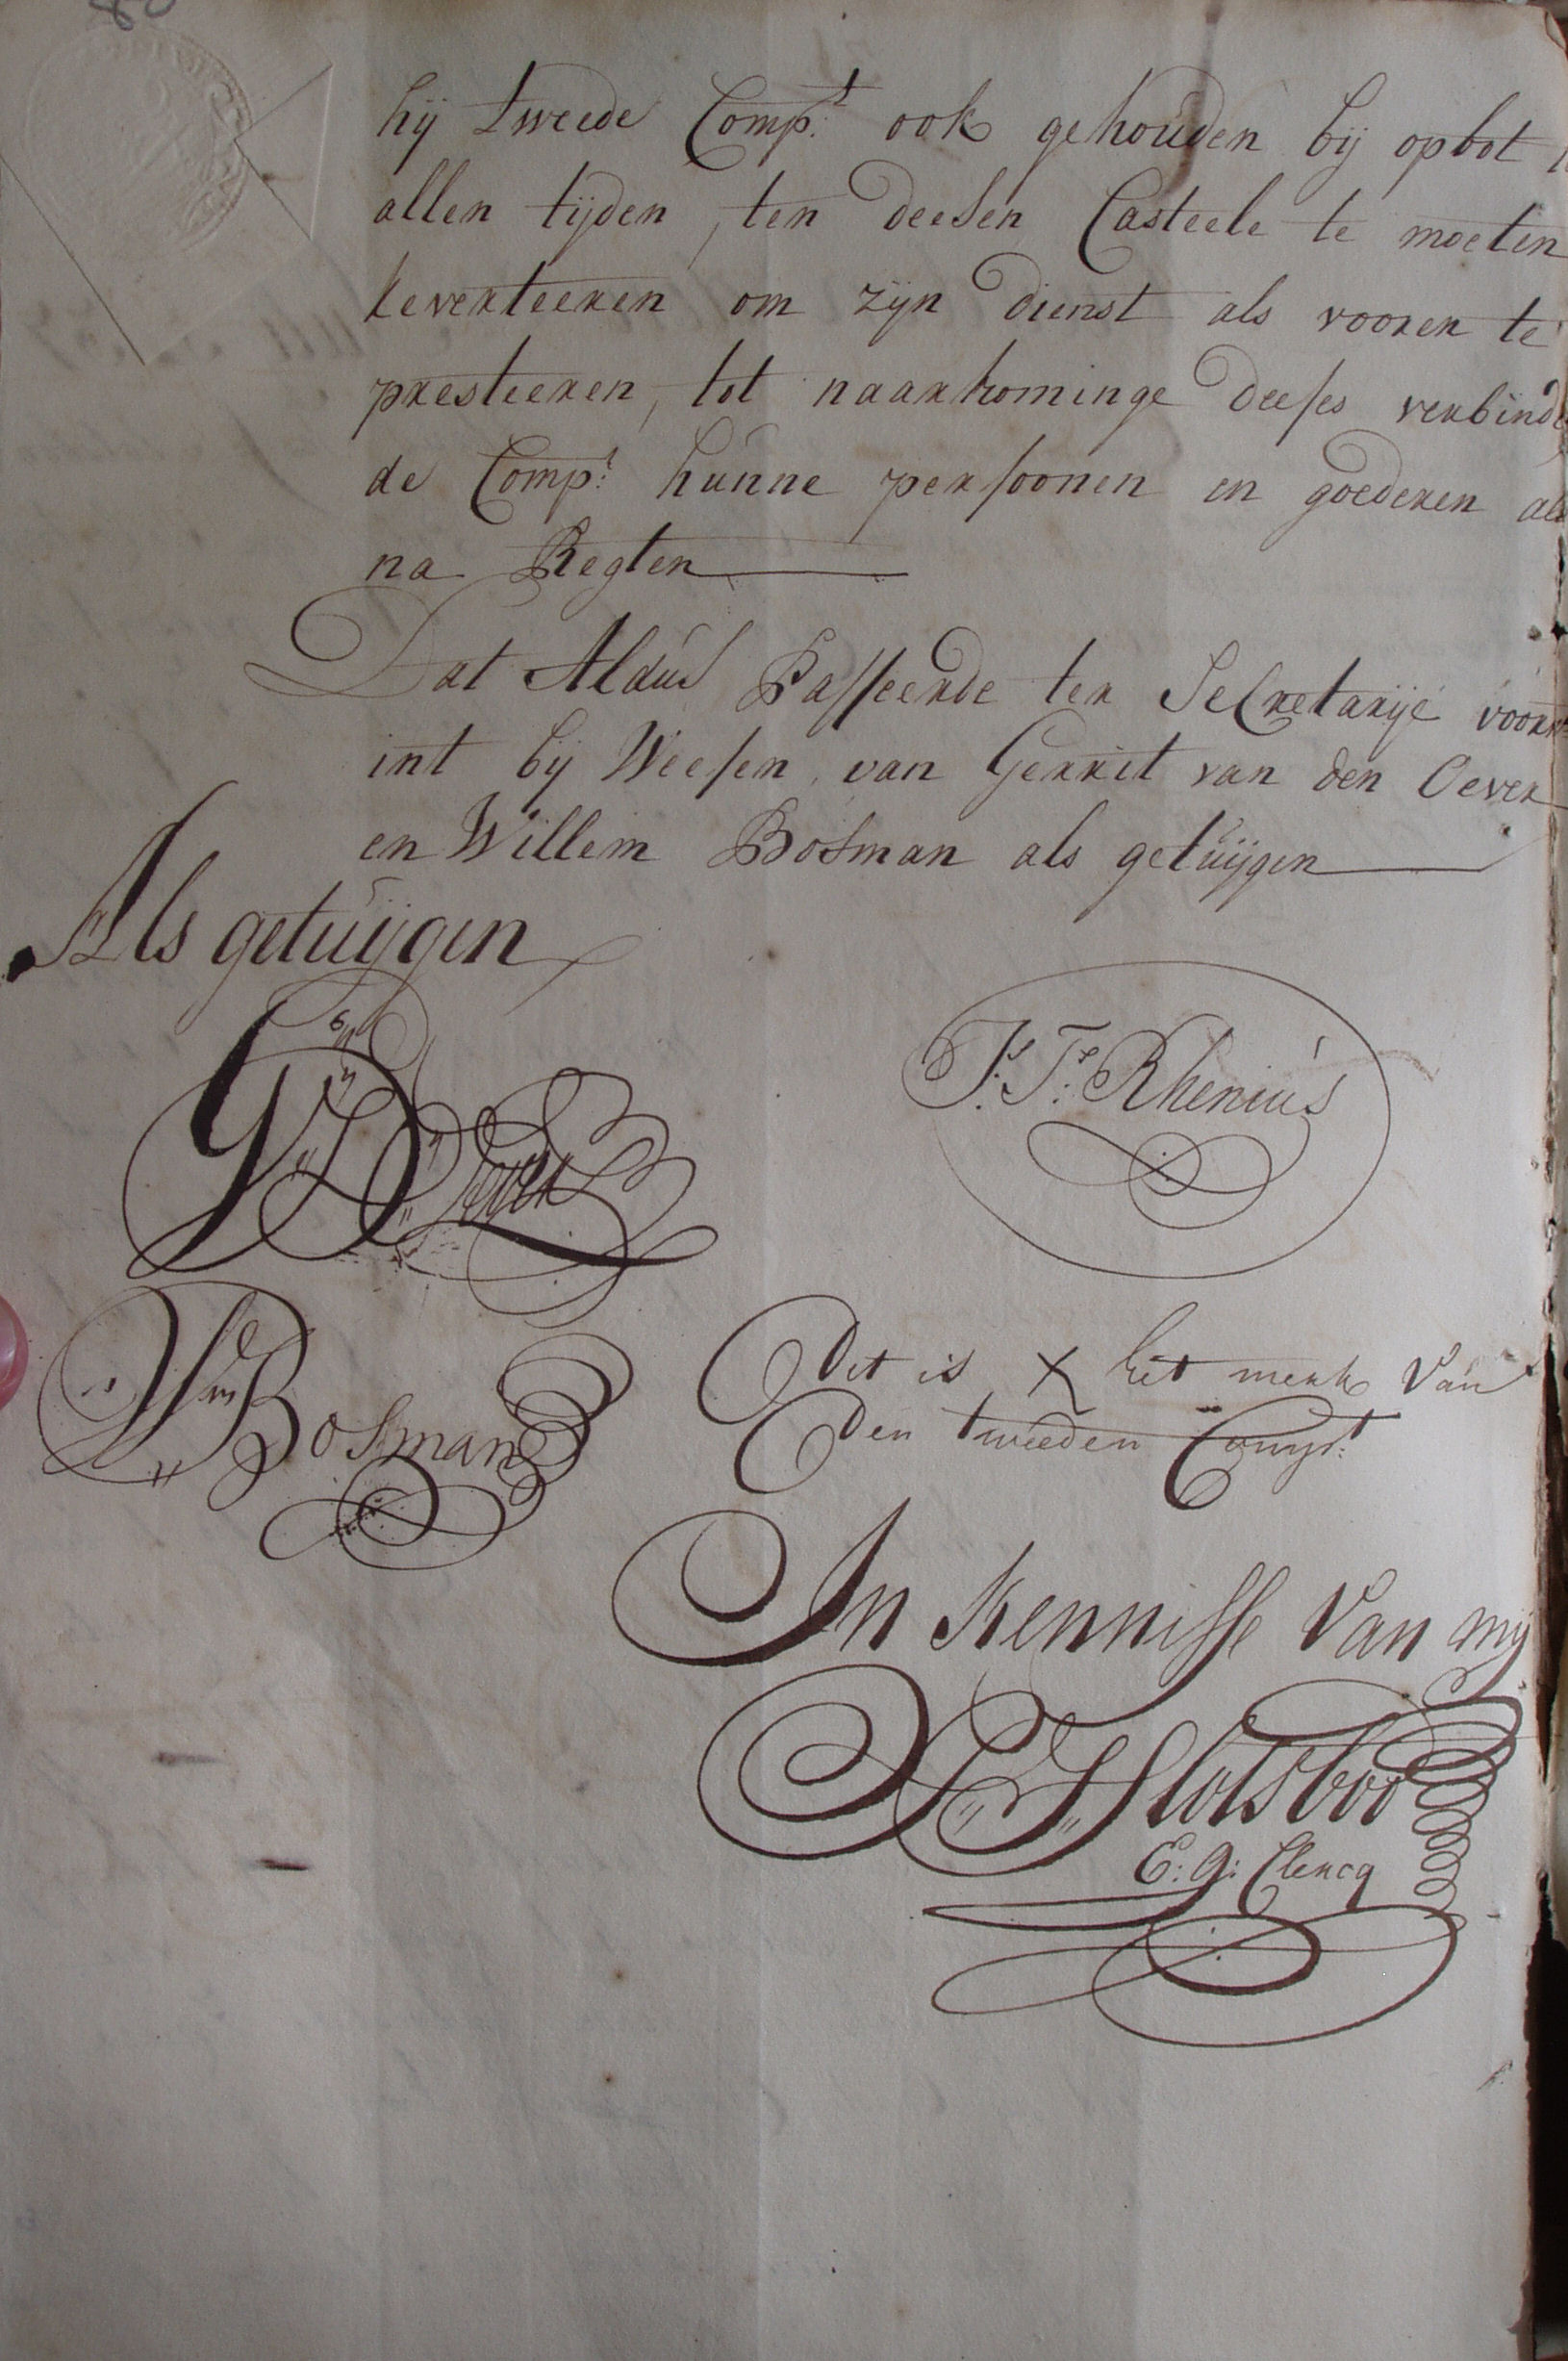 hij tweede Comp:t ook gehouden bij opbot
allen tijden, ten deesen Casteele te moeten
reverteeren om zijn dienst als vooren te
presteeren, tot naarkominge deeses verbind
de Comp:t hunne persoonen en goederen als
na Regten
Dat Aldus Passeerde ter Secretarije voorn:
int bij Weesen van Gerrit van den Oever
en Willem Bosman als getuijgen
Als getuijgen
J:s T:s Rhenius
G: V: D: Oever
Dit is X het merk van
Den tweeden Comp:t
Wm Bosman
In kennisse van mij
Slotsboo
E: g: Clercq